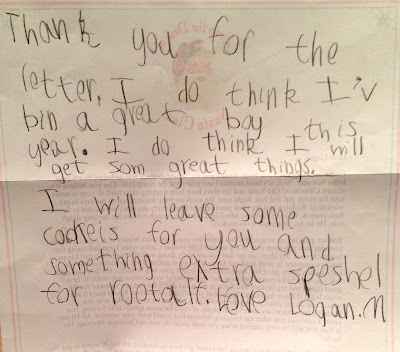 Thank you for the
letter. I do think I'v
bin a great boy this
year. I do think I will
get som great things.
I will leave some
cookeis for you and
something extra speshel
for rootalf. Love Logan.M